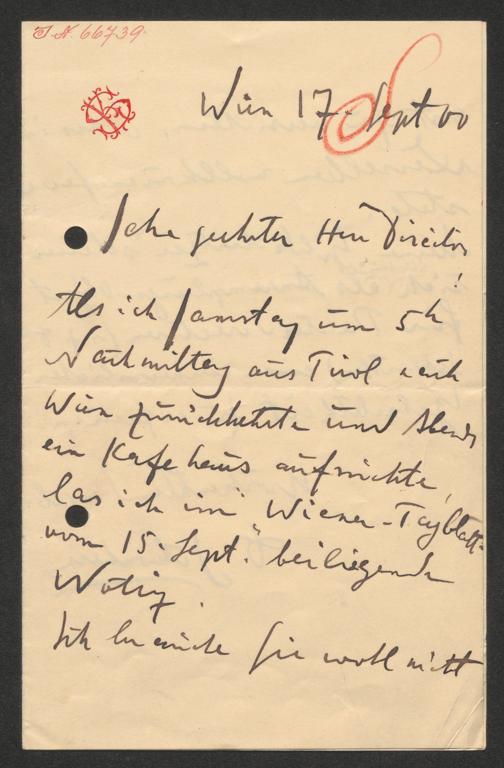 I. N. 66739.
Wien 17. Sept 00
Sehr geehrter Herr Director
!
Als ich Samstag um 5h
Nachmittag aus Tirol nach
Wien zurückkehrte und Abends
ein Kafehaus aufsuchte,
las ich im "Wiener-Tagblatt"
vom 15. Sept. beiliegende
Notiz.
Ich brauche Sie wohl nicht